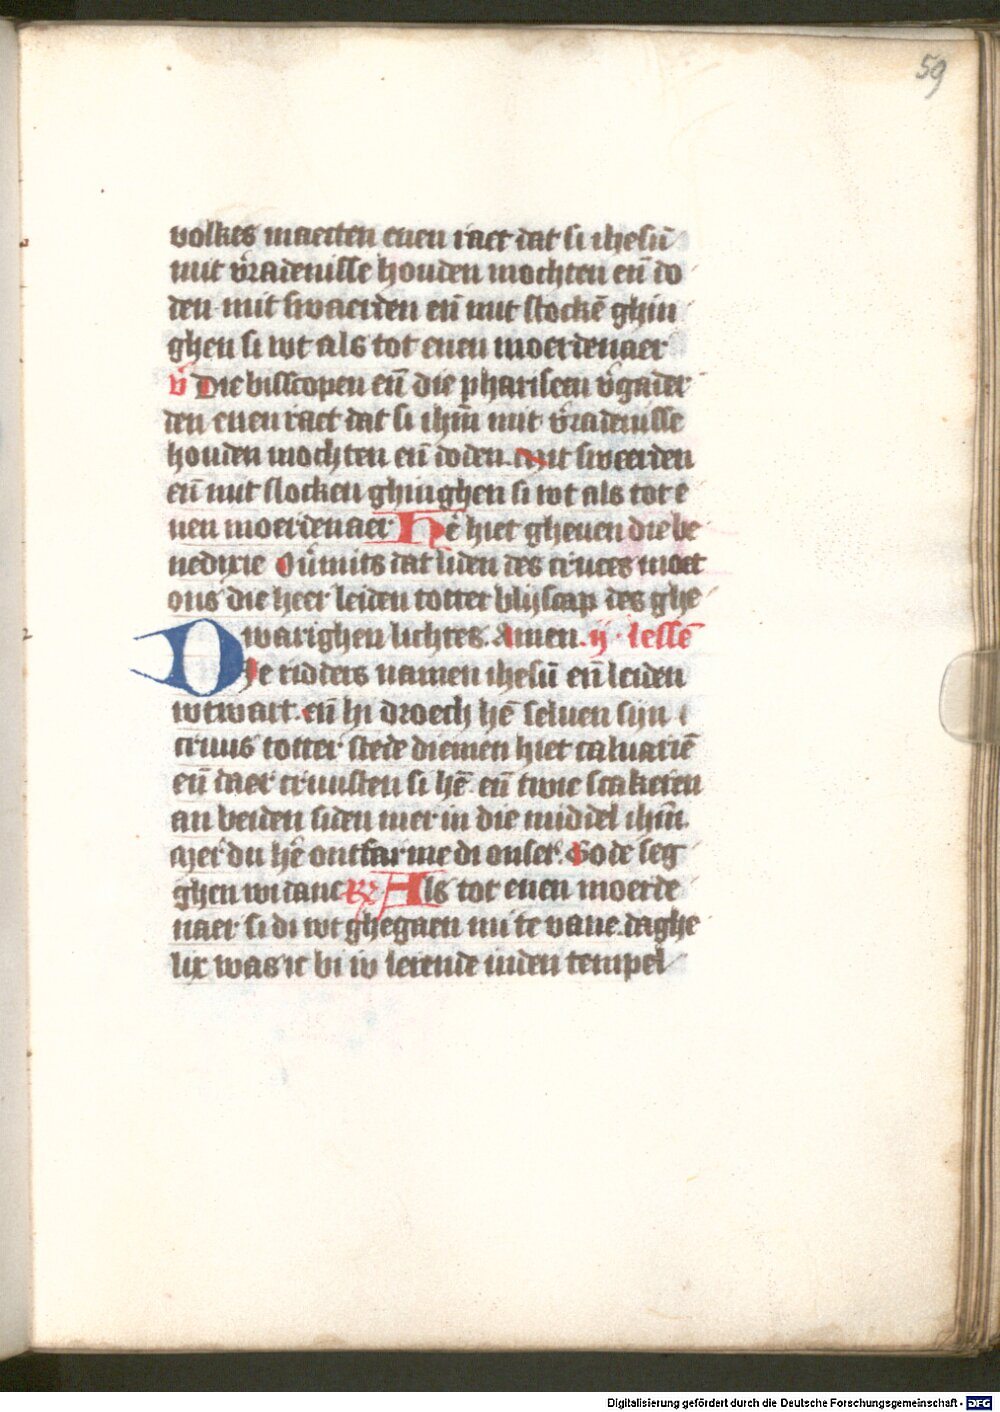 59
volkes maecten enen raet dat si ihesū
mit v̄radenisse houden mochten eñ do
den mit swaerden eñ mit stockē ghin
ghen si wt als tot enen moerdenaer
v̄ Die bisscopen eñ die phariseen v̄gader
den enen raet dat si ihm̄ mit v̄radenisse
houden mochten eñ doden. mit sweerden
eñ mit stocken ghinghen si wt als tot e
nen moerdenaer Hē hiet gheuen die be
nedixie Ou̅mits dat liden des cruces moet
ons die heer leiden totter blijscap des ghe
warighen lichtes. Amen. ij. lessē
Die ridders namen ihesū eñ leiden
wtwart. eñ hi droech hē seluen sijn
cruus totter stede diemen hiet caluariē
eñ daer cruusten si hē. eñ twie scakeren
an beiden siden mer in die middel ihm̄.
Mer du hē ontfarme di onser. Gode seg
ghen wi danc ℟ Als tot enen moerde
naer si di wt ghegaen mi te vane. daghe
lix was ic bi iv lerende inden tempel
Digitalisierung gefördert durch die Deutsche Forschungsgemeinschaft - DFG